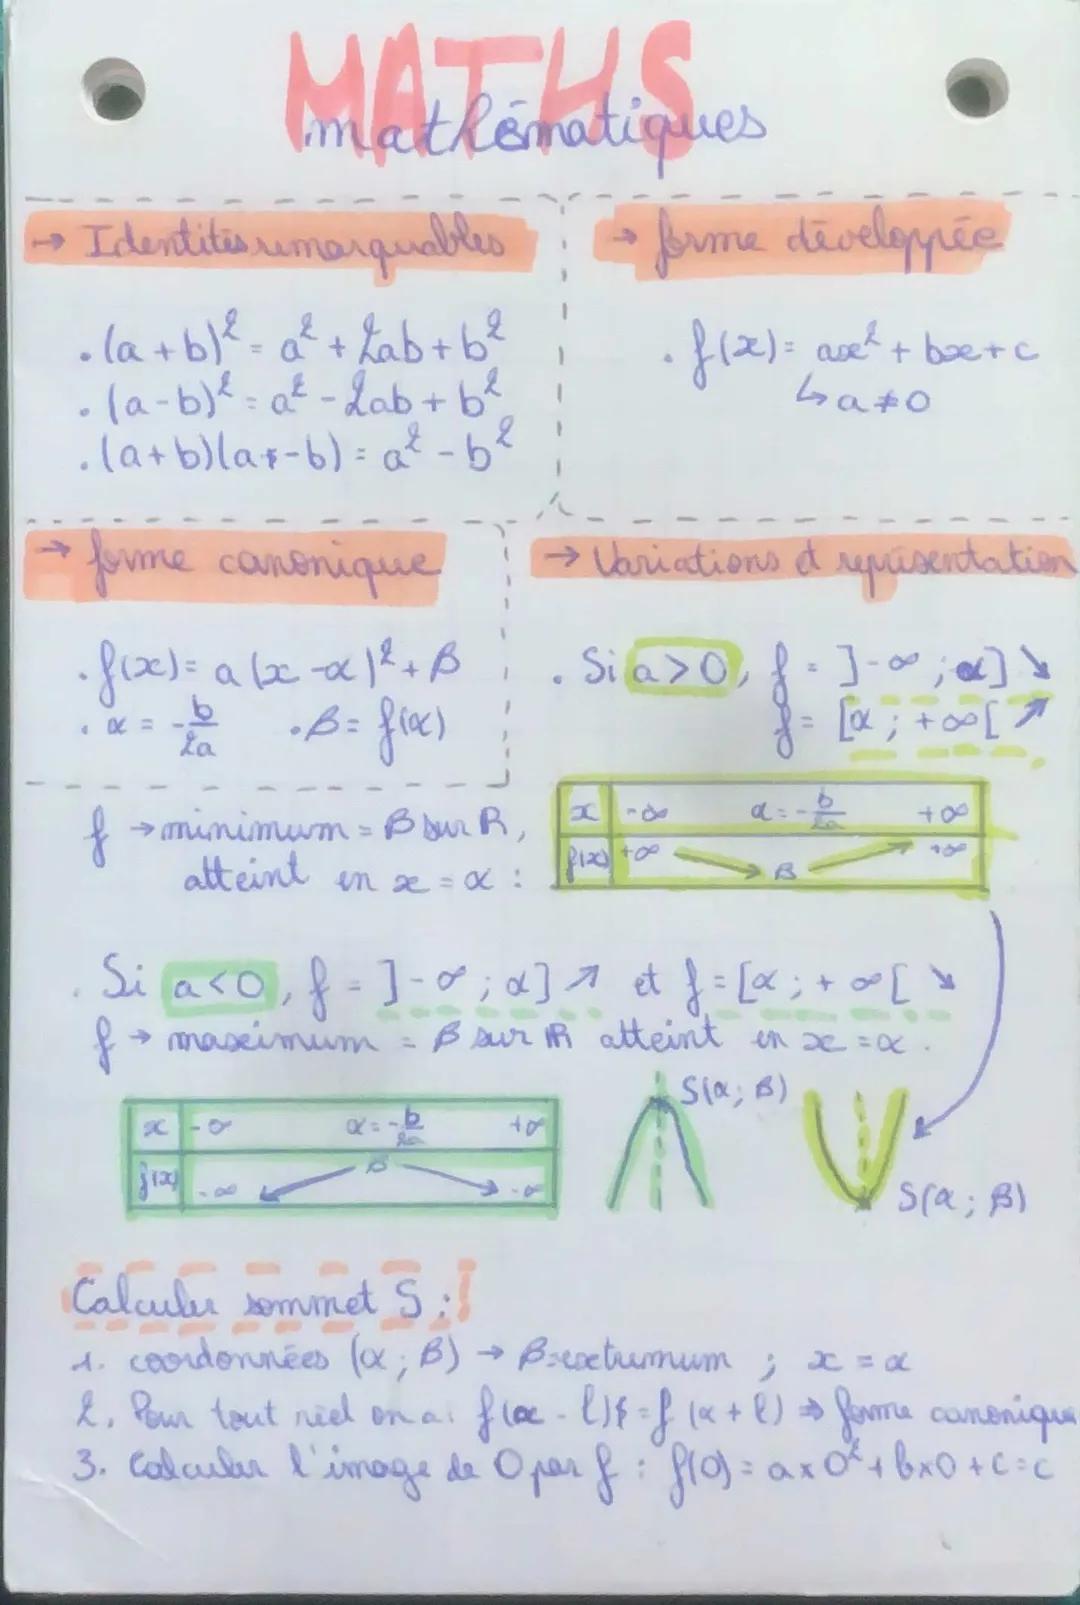 MATHS
mathématiques
→ Identités remarquables
. (a+b)² = a² + 2ab + b²
. (a-b)² = a² - 2ab + b²
. (a+b)(a-b) = a² - b²
→ forme développée
. f(x) = ax² + bx + c
↳ a ≠ 0
→ forme canonique
. f(x) = a(x - α)² + β
. α = -b/2a . β = f(α)
→ Variations et représentation
. Si a > 0, f = ]-∞ ; α] ↘
f = [α ; +∞[ ↗
f → minimum = β sur R,
atteint en x = α :
x -∞ α = -b/2a +∞
f(x) +∞ ↘ β ↗ +∞
. Si a < 0, f = ]-∞ ; α] ↗ et f = [α ; +∞[ ↘
f → maximum = β sur R atteint en x = α .
x -∞ α = -b/2a +∞
f(x) -∞ β -∞
S(α ; β)
S(α ; β)
Calculer sommet S :
1. coordonnées (α ; β) → β = extremum ; x = α
2. Pour tout réel on a : f(α - l) = f(α + l) ⇒ forme canonique
3. Calculer l'image de 0 par f : f(0) = a x 0² + b x 0 + c = c